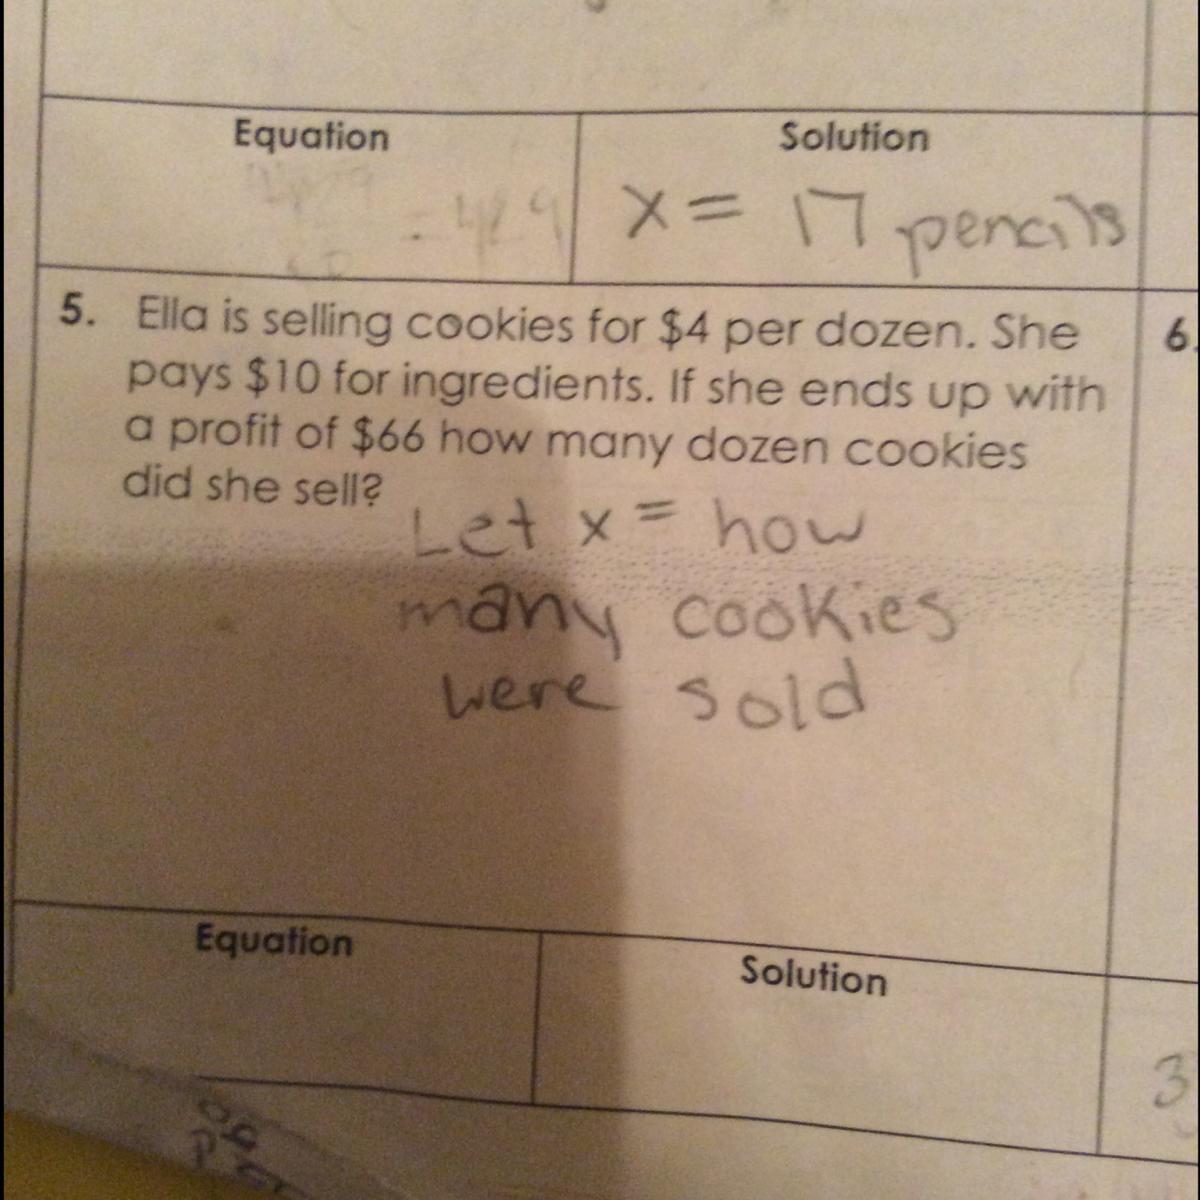 Equation
Solution
x = 17 pencils
5. Ella is selling cookies for $4 per dozen. She
pays $10 for ingredients. If she ends up with
a profit of $66 how many dozen cookies
did she sell?
Let x = how
many cookies
were sold
6.
Equation
Solution
3